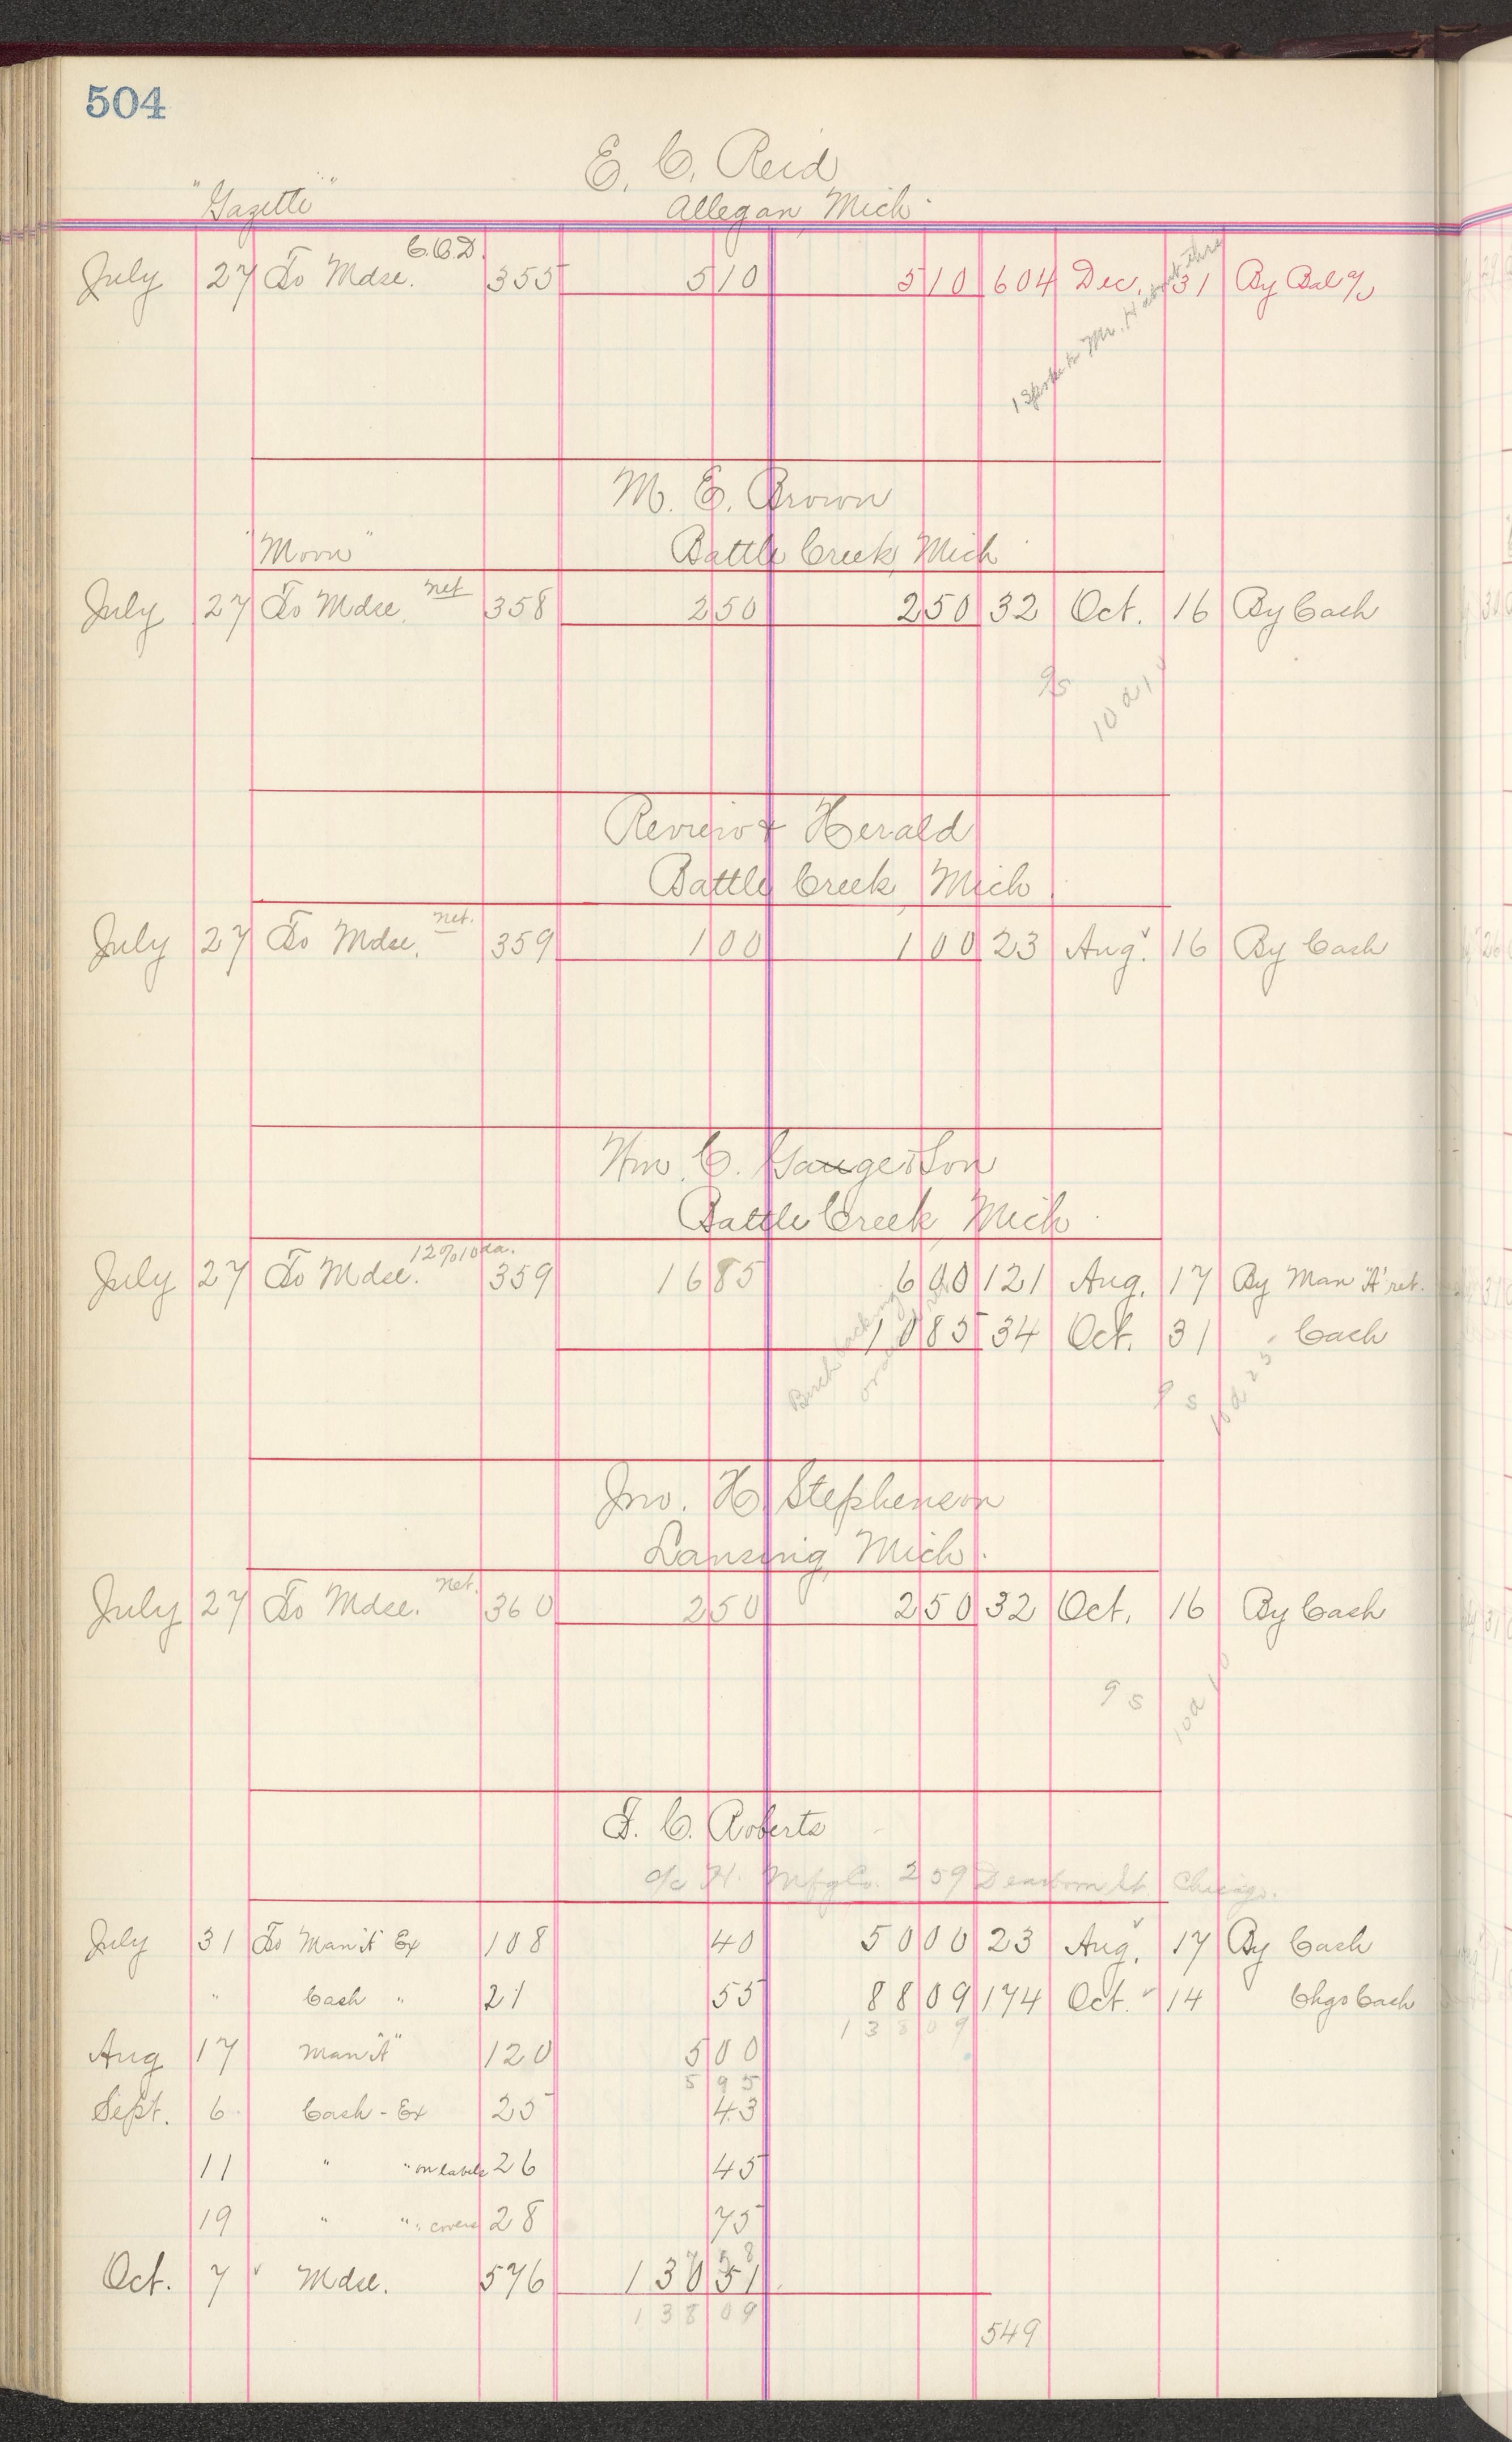 504
E. C. Reid
"Gazette" Allegan Mich.
July 27 To Mdse. C.O.D. 355 5 10 5 10 604 Dec. 31 By Bal %
M. E. Brown
"Moon" Battle Creek Mich
July 27 To Mdse. net 358 2 50 2 50 32 Oct. 16 By Cash
9/5
Review & Herald
Battle Creek Mich
July 27 To Mdse. net. 359 1 00 1 00 23 Aug. 16 By Cash
Wm. C. Gauge & Son
Battle Creek Mich.
July 27 To Mdse. 359 16 85 6 00 121 Aug. 17 By Man "A" ret.
10 85 34 Oct. 31 " Cash
9 5
Jno. H. Stephenson
Lansing Mich.
July 27 To Mdse. net. 360 2 50 2 50 32 Oct. 16 By Cash
9 5
F. C. Roberts
c/o H. Mfg Co. 259 Dearborn St. Chicago.
July 31 To Man "A" Ex 108 40 50 00 23 Aug. 17 By Cash
" Cash " 21 55 88 09 174 Oct. 14 Chgs Cash
138 09
Aug 17 Man "A" 120 5 00
5 95
Sept. 6 Cash - Ex 25 43
11 " " on labels 26 45
19 " " covers 28 75
Oct. 7 Mdse. 576 130 51
138 09
549